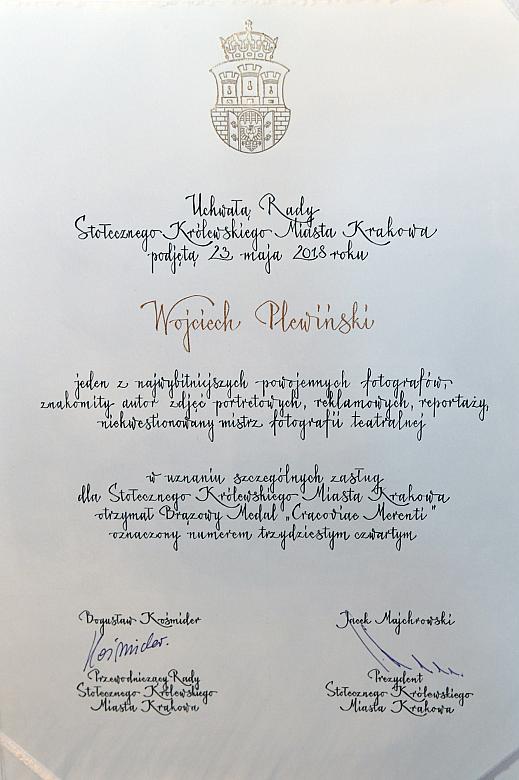 Uchwałą Rady
Stołecznego Królewskiego Miasta Krakowa
podjętą 23 maja 2018 roku
Wojciech Plewiński
jeden z najwybitniejszych powojennych fotografów,
znakomity autor zdjęć portretowych, reklamowych, reportaży,
niekwestionowany mistrz fotografii teatralnej
w uznaniu szczególnych zasług
dla Stołecznego Królewskiego Miasta Krakowa
otrzymał Brązowy Medal „Cracoviae Merenti"
oznaczony numerem trzydziestym czwartym
Bogusław Kośmider
Kośmider.
Przewodniczący Rady
Stołecznego Królewskiego
Miasta Krakowa
Jacek Majchrowski
Prezydent
Stołecznego Królewskiego
Miasta Krakowa